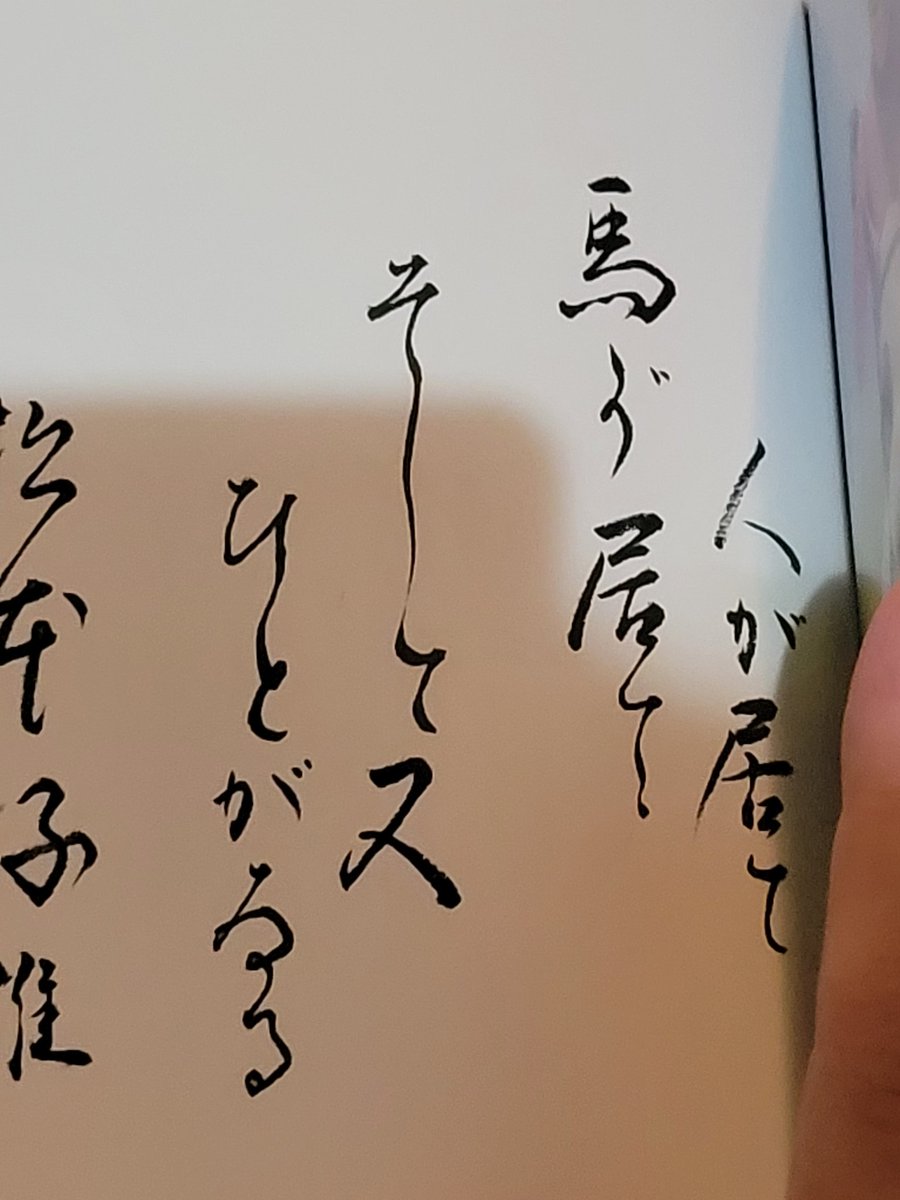 人が居て
馬が居て
そして又
ひとがゐる
松本子惟